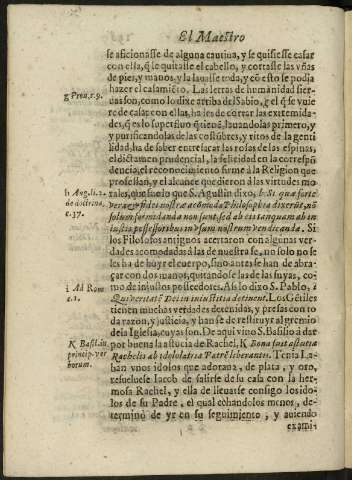 El Maestro
se aficionasse de alguna cautiua, y se quisiesse casar
con ella, q̃ se quitasse el cabello, y cortasse las vñas
de pies, y manos, y la lauasse toda, y cõ esto se podia
hazer el casamiẽto. Las letras de humanidad sier-
g Prou. c. 9.
uas son, como lo dixe arriba del Sabio, g el q̃ se vuie
re de casar con ellas, ha les de cortar las extremida-
des, q̃ es lo superfluo q̃ tienẽ, lauandolas primero, y
y purificandolas de las costũbres, y ritos de la genti
lidad, ha de sober entresacar las rosas de las espinas,
el dictamen prudencial, la felicidad en la correspõ
dencia, el reconocimiento firme à la Religion que
professan, y el alcance que dieron à las virtudes mo-
h Aug. li. 2.
de doctrina,
c. 37.
rales, que fue lo que S. Agustin dixo, h Si qua forte
vera, & fidei nostræ acõmoda Philosophia dixerũt, nõ
solum formidanda non sunt, sed ab eis tanquam ab in
iustis possessoribus in vsum nostrum vendicanda. Si
los Filosofos antiguos acertaron con algunas ver-
dades acomodadas à las de nuestra fe, no solo no se
les ha de huyr el cuerpo, sino antes se han de abra-
çar con dos manos, quitandose las de las suyas, co-
i Ad Rom
c. 1.
mo de injustos posseedores. Assi lo dixo S. Pablo, i
Qui veritatẽ Dei in iniustitia detinent. Los Gẽtiles
tienen muchas verdades detenidas, y presas con to
da razon, y justicia, y han se de restituyr al gremio
de la Iglesia, cuyas son. De aqui vino S. Basilio à dar
K Basil. in
princip. ver
borum.
por buena la astucia de Rachel, K Bona fuit astutia
Rachelis ab idololatria Patrẽ liberantis. Tenia La-
ban vnos idolos que adoraua, de plata, y oro,
resueluese Iacob de salirse de su casa con la her-
mosa Rachel, y ella de lleuarse consigo los ido-
los de su Padre, el qual echandolos menos, de-
terminò de yr en su seguimiento, y auiendo
exami-